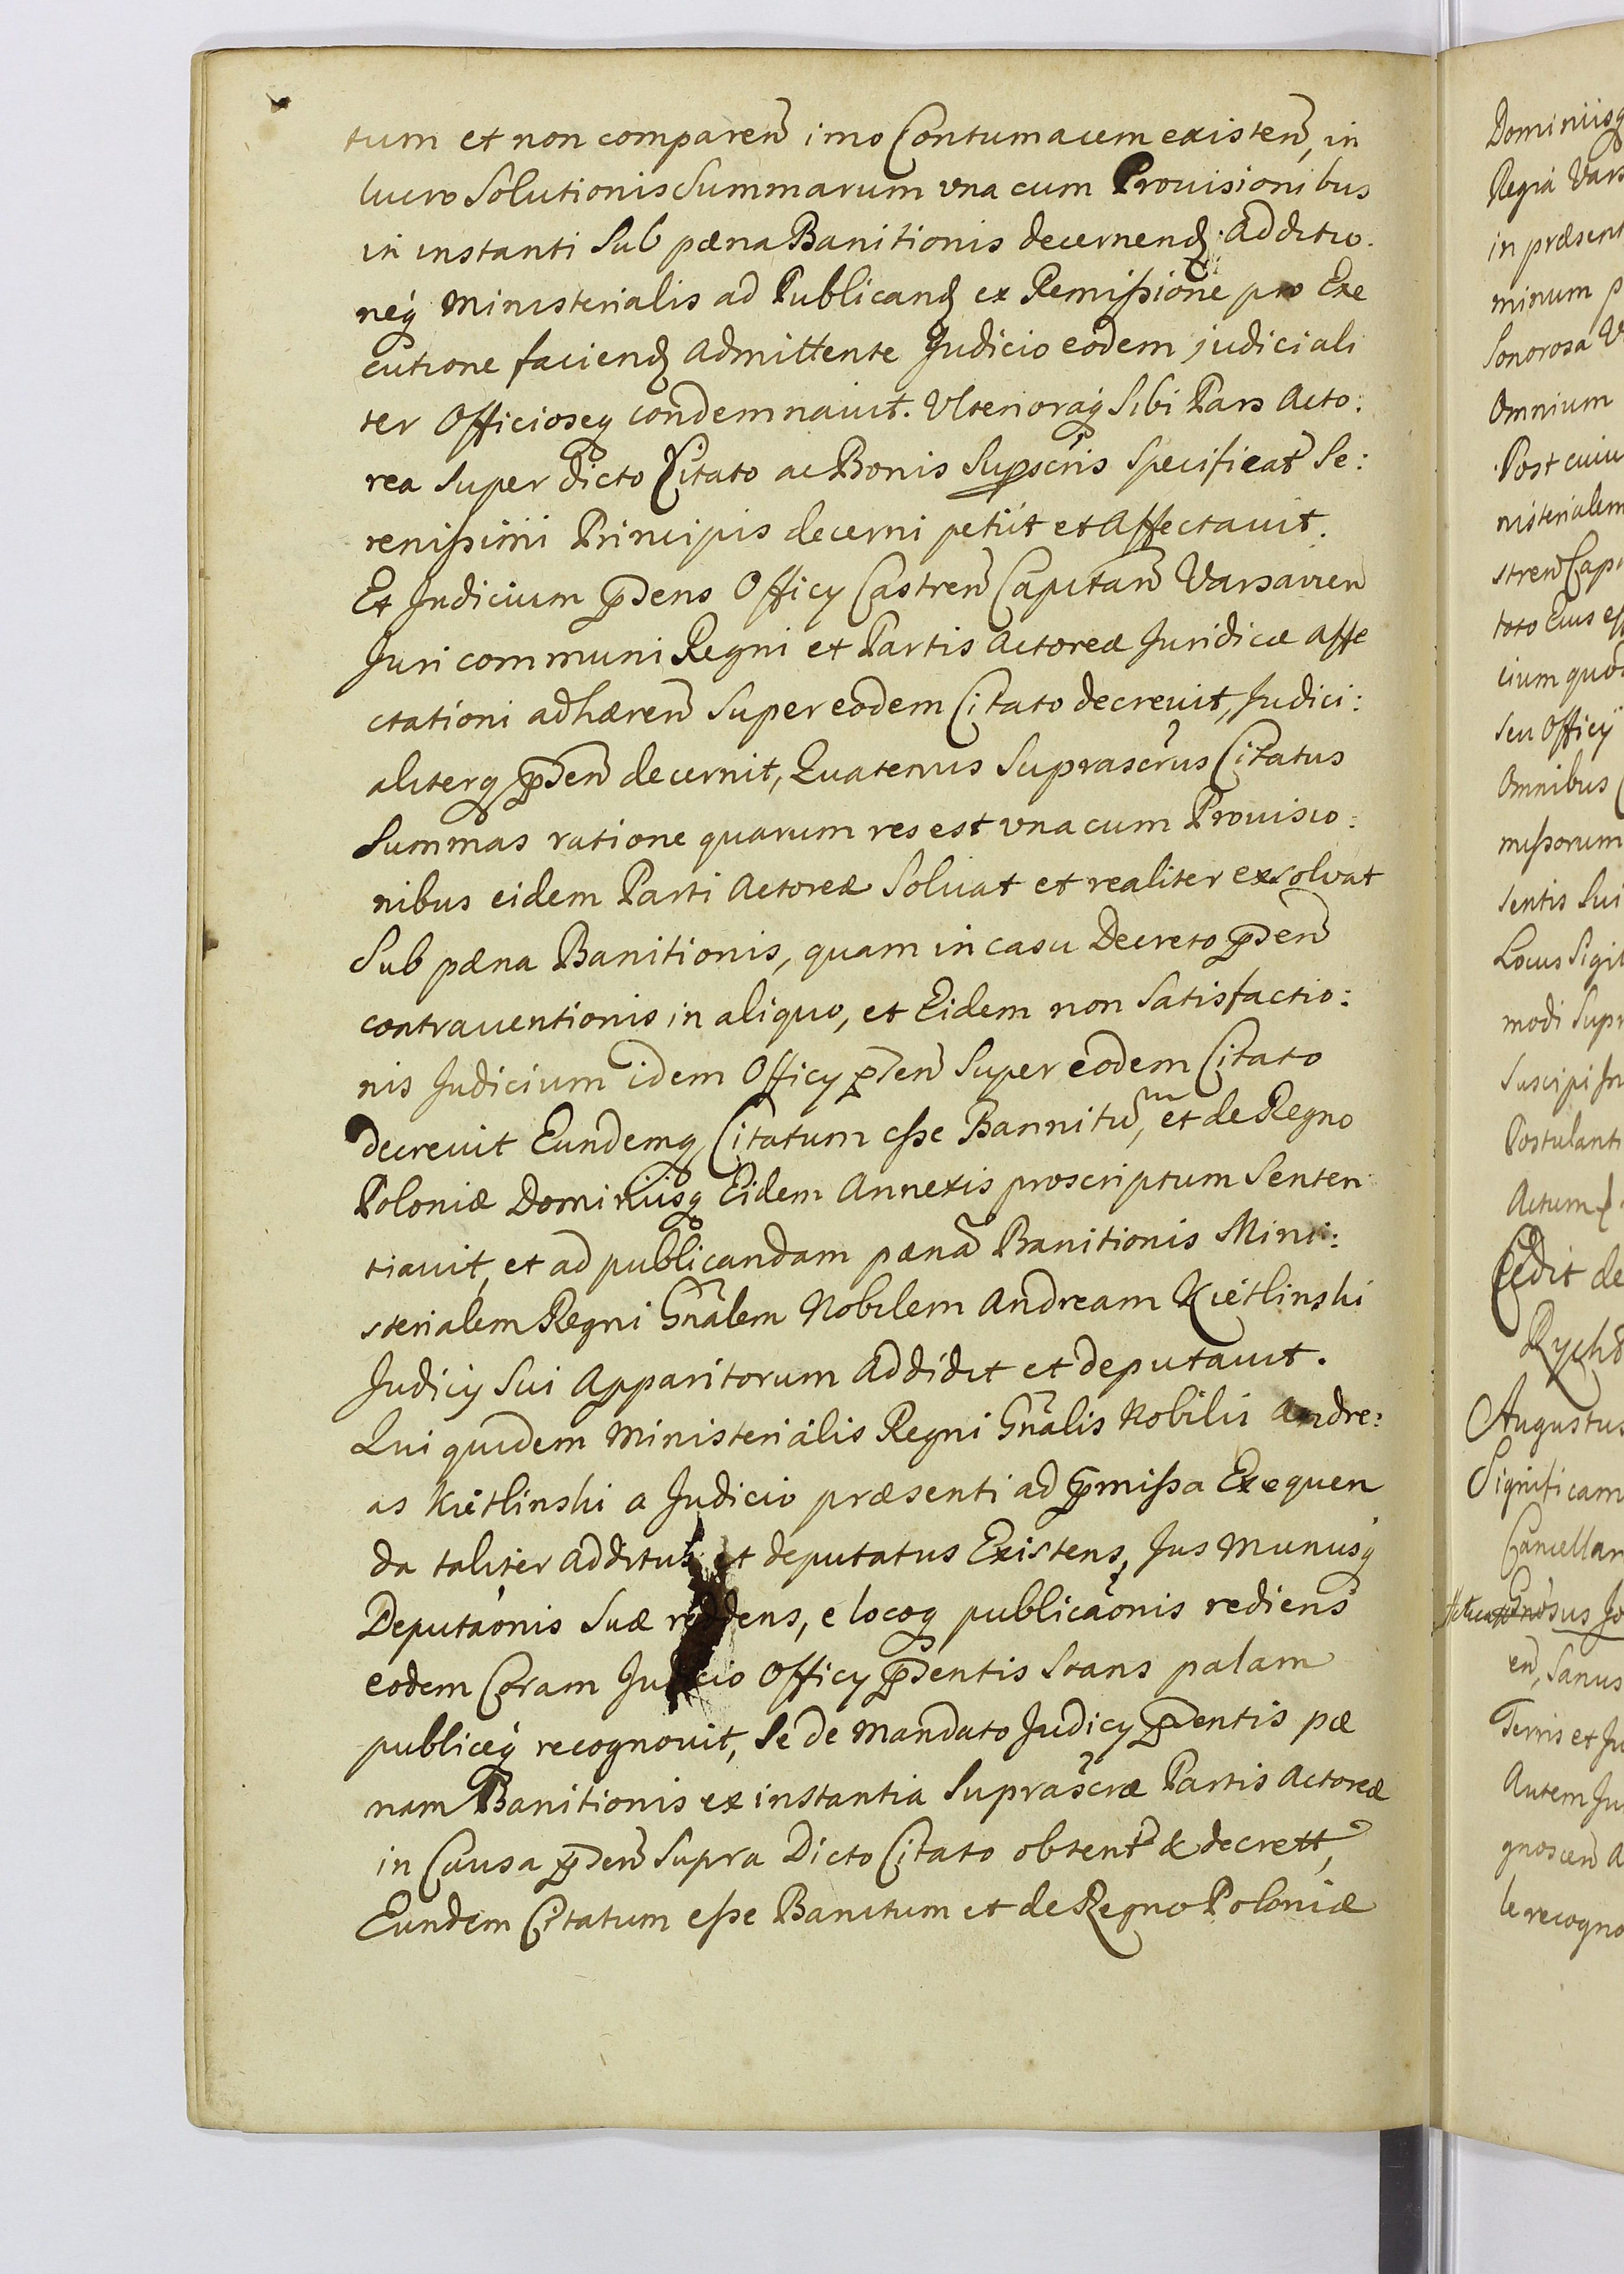 tum et non comparen̄ imo Contumacem existen̄, in
lucro Solutionis Summarum vna cum Prouisionibus
in instanti Sub pæna Banitionis decernend. Additio.
neq Ministerialis ad Publicand ex Remißione pro Exe
cutione faciend Admittente Judicio eodem judiciali
ter Officioseq condemnauit. Vlterioraq Sibi Pars Acto:
rea Super dicto Citato ac Bonis Supscris Specificat Se:
renißimi Principis decerni petiit et Affectauit.
Et Judicium pn̄s Officy Castren̄ Capitan̄ Varsavien
Juri communi Regni et Partis Actoreæ Juridicæ Affe
ctationi adhæren̄ Super eodem Citato decreuit, Judici:
aliterq pn̄ decernit, Quatenus Suprascrus Citatus
Summas ratione quarum res est vna cum Prouisio:
nibus eidem Parti Actoreæ Soluat et realiter exsolvat
Sub pæna Banitionis, quam in casu Decreto pn̄
contrauentionis in aliquo, et Eidem non Satisfactio:
nis Judicium idem Officy pn̄ Super eodem Citato
decreuit Eundemq Citatum eße Bannitum, et de Regno
Poloniæ Dominiisq Eidem Annexis proscriptum Senten
tiauit, et ad publicandam pænā Banitionis Mini:
sterialem Regni Gn̄alem Nobilem Andream Kietlinski
Judicy Sui Apparitorum Addidit et deputauit.
Qui quidem Ministerialis Regni Gn̄alis Nobilis Andre:
as Kietlinski a Judicio præsenti ad p̄mißa Exequen
da taliter additus et deputatus Existens, Jus Munusq
Deputaōnis Suæ reddens, e locoq publicaōnis rediens
eodem Coram Judicio Officy pn̄tis Stans palam
publiceq recognouit, Se de Mandato Judicy pn̄tis pæ
nam Banitionis ex instantia Suprascræ Partis Actoreæ
in Causa pn̄ Supra Dicto Citato obtent & decrett,
Eundem Citatum eße Banitum et de Regno Poloniæ
Dominiisq
Regia Vars
in præsent
minum p
Sonorosa
Omnium
Post cuiu
nisterialem
stren̄ Capi
toto Eius
cium quod
seu Officy
Omnibus
mißorum
sentis Sui
Locus Sigil
modi Supr
Suscipi
Postulanti
Actum
Cedit de
Augustus
Significam
Cancellar
en̄, Sanus
Terris et Ju
Autem Ju
gnoscen̄ A
le recogno